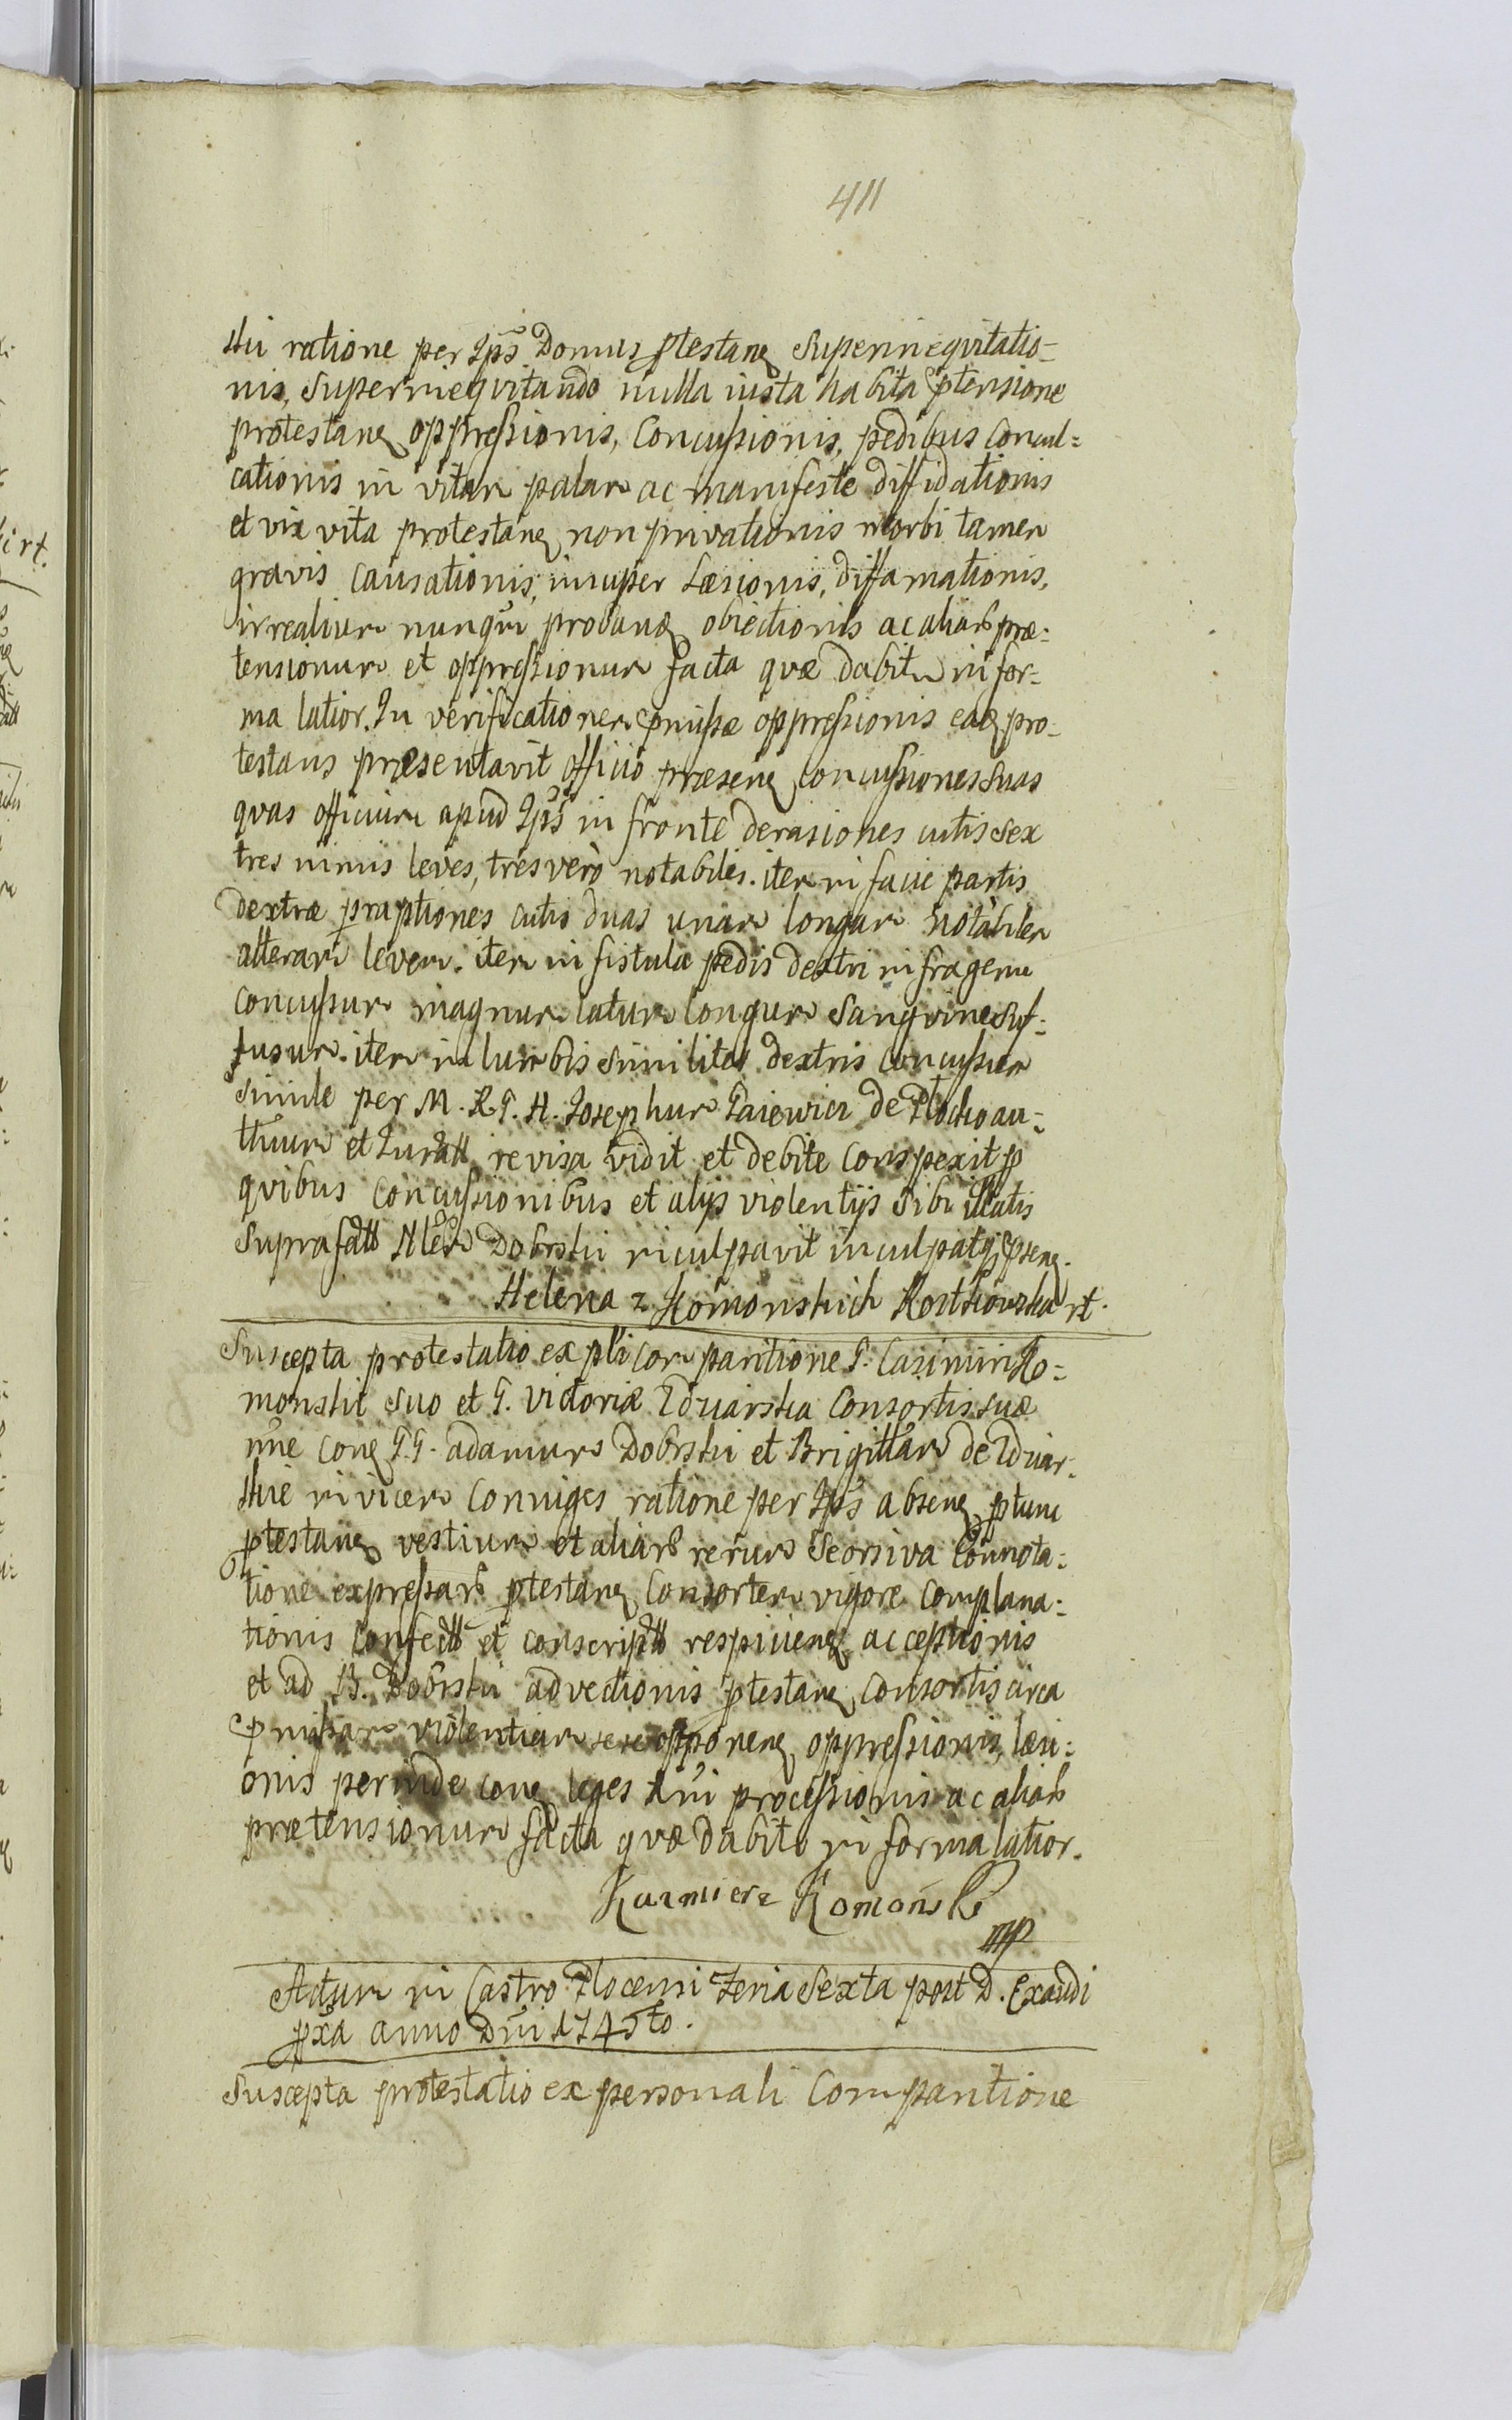 411
ski ratione per Ips Domus ptestanę superinequitatio-
nis, superinequitando nulla iusta habita ptensione
protestanę oppressionis, Concussionis, pedibus concul=
cationis in vitam palam ac manifeste diffidationis
et vix vita protestanę non privationis morbi tamen
gravis causationis, insuper Læsionis, diffamationis,
irrealium nunqm probanę obiectionis ac aliarb præ=
tensionum et oppressionum facta quæ dabitur in for=
ma latior. In verificationem pmissæ oppressionis eadę pro-
testans præsentavit officio præsenę concussiones suas
quas officium apud Ips in fronte derasiones cutis sex
tres nimis leves, tres verò notabiles. item in facie partis
dextræ praptiones cutis duas unam longam notabilem
alteram levem. item in fistula pedis dextri in fragenu
concussum magnum latum longum sangvine suf=
fusum. item in lumbis similiter dextris concussum
simile per M. R. G. H. Josephum Paiewicz de Plocko au=
thum et Juratt revisa vidit et debite conspexit p
quibus concussionibus et alys violentijs sibi illatis
suprafatt Dobrski inculpavit inculpatqz psenę.
Helena z Komonskich Kostkowska rt.
Suscepta protestatio ex psli comparitione G. Casimiri Ko=
monskit suo et G. Victoriæ Zdwarska Consortis suæ
nne conę G.G. adamum Dobrski et Brigittam de Zdwar=
skie invicem coniuges ratione per Ips absenę ptunc
ptestanę vestium et aliarb rerum seorsiva connota=
tione expressarb ptestanę consortem vigore complana=
tionis confectt et conscriptt respiciene acceptionis
et ad B. Dobrski advectionis ptestanę consortis circa
pmissam violentiam sese opponenę oppressionis, læsi=
onis perinde conę leges Rni processionis ac aliarb
prætensionum facta quæ dabitur in forma latior.
Kazmierz Komoński
mp
Actum in Castro Plocensi Feria Sexta post D. Exaudi
pxa anno Dni 1745to.
Suscepta protestatio ex personali Comparitione